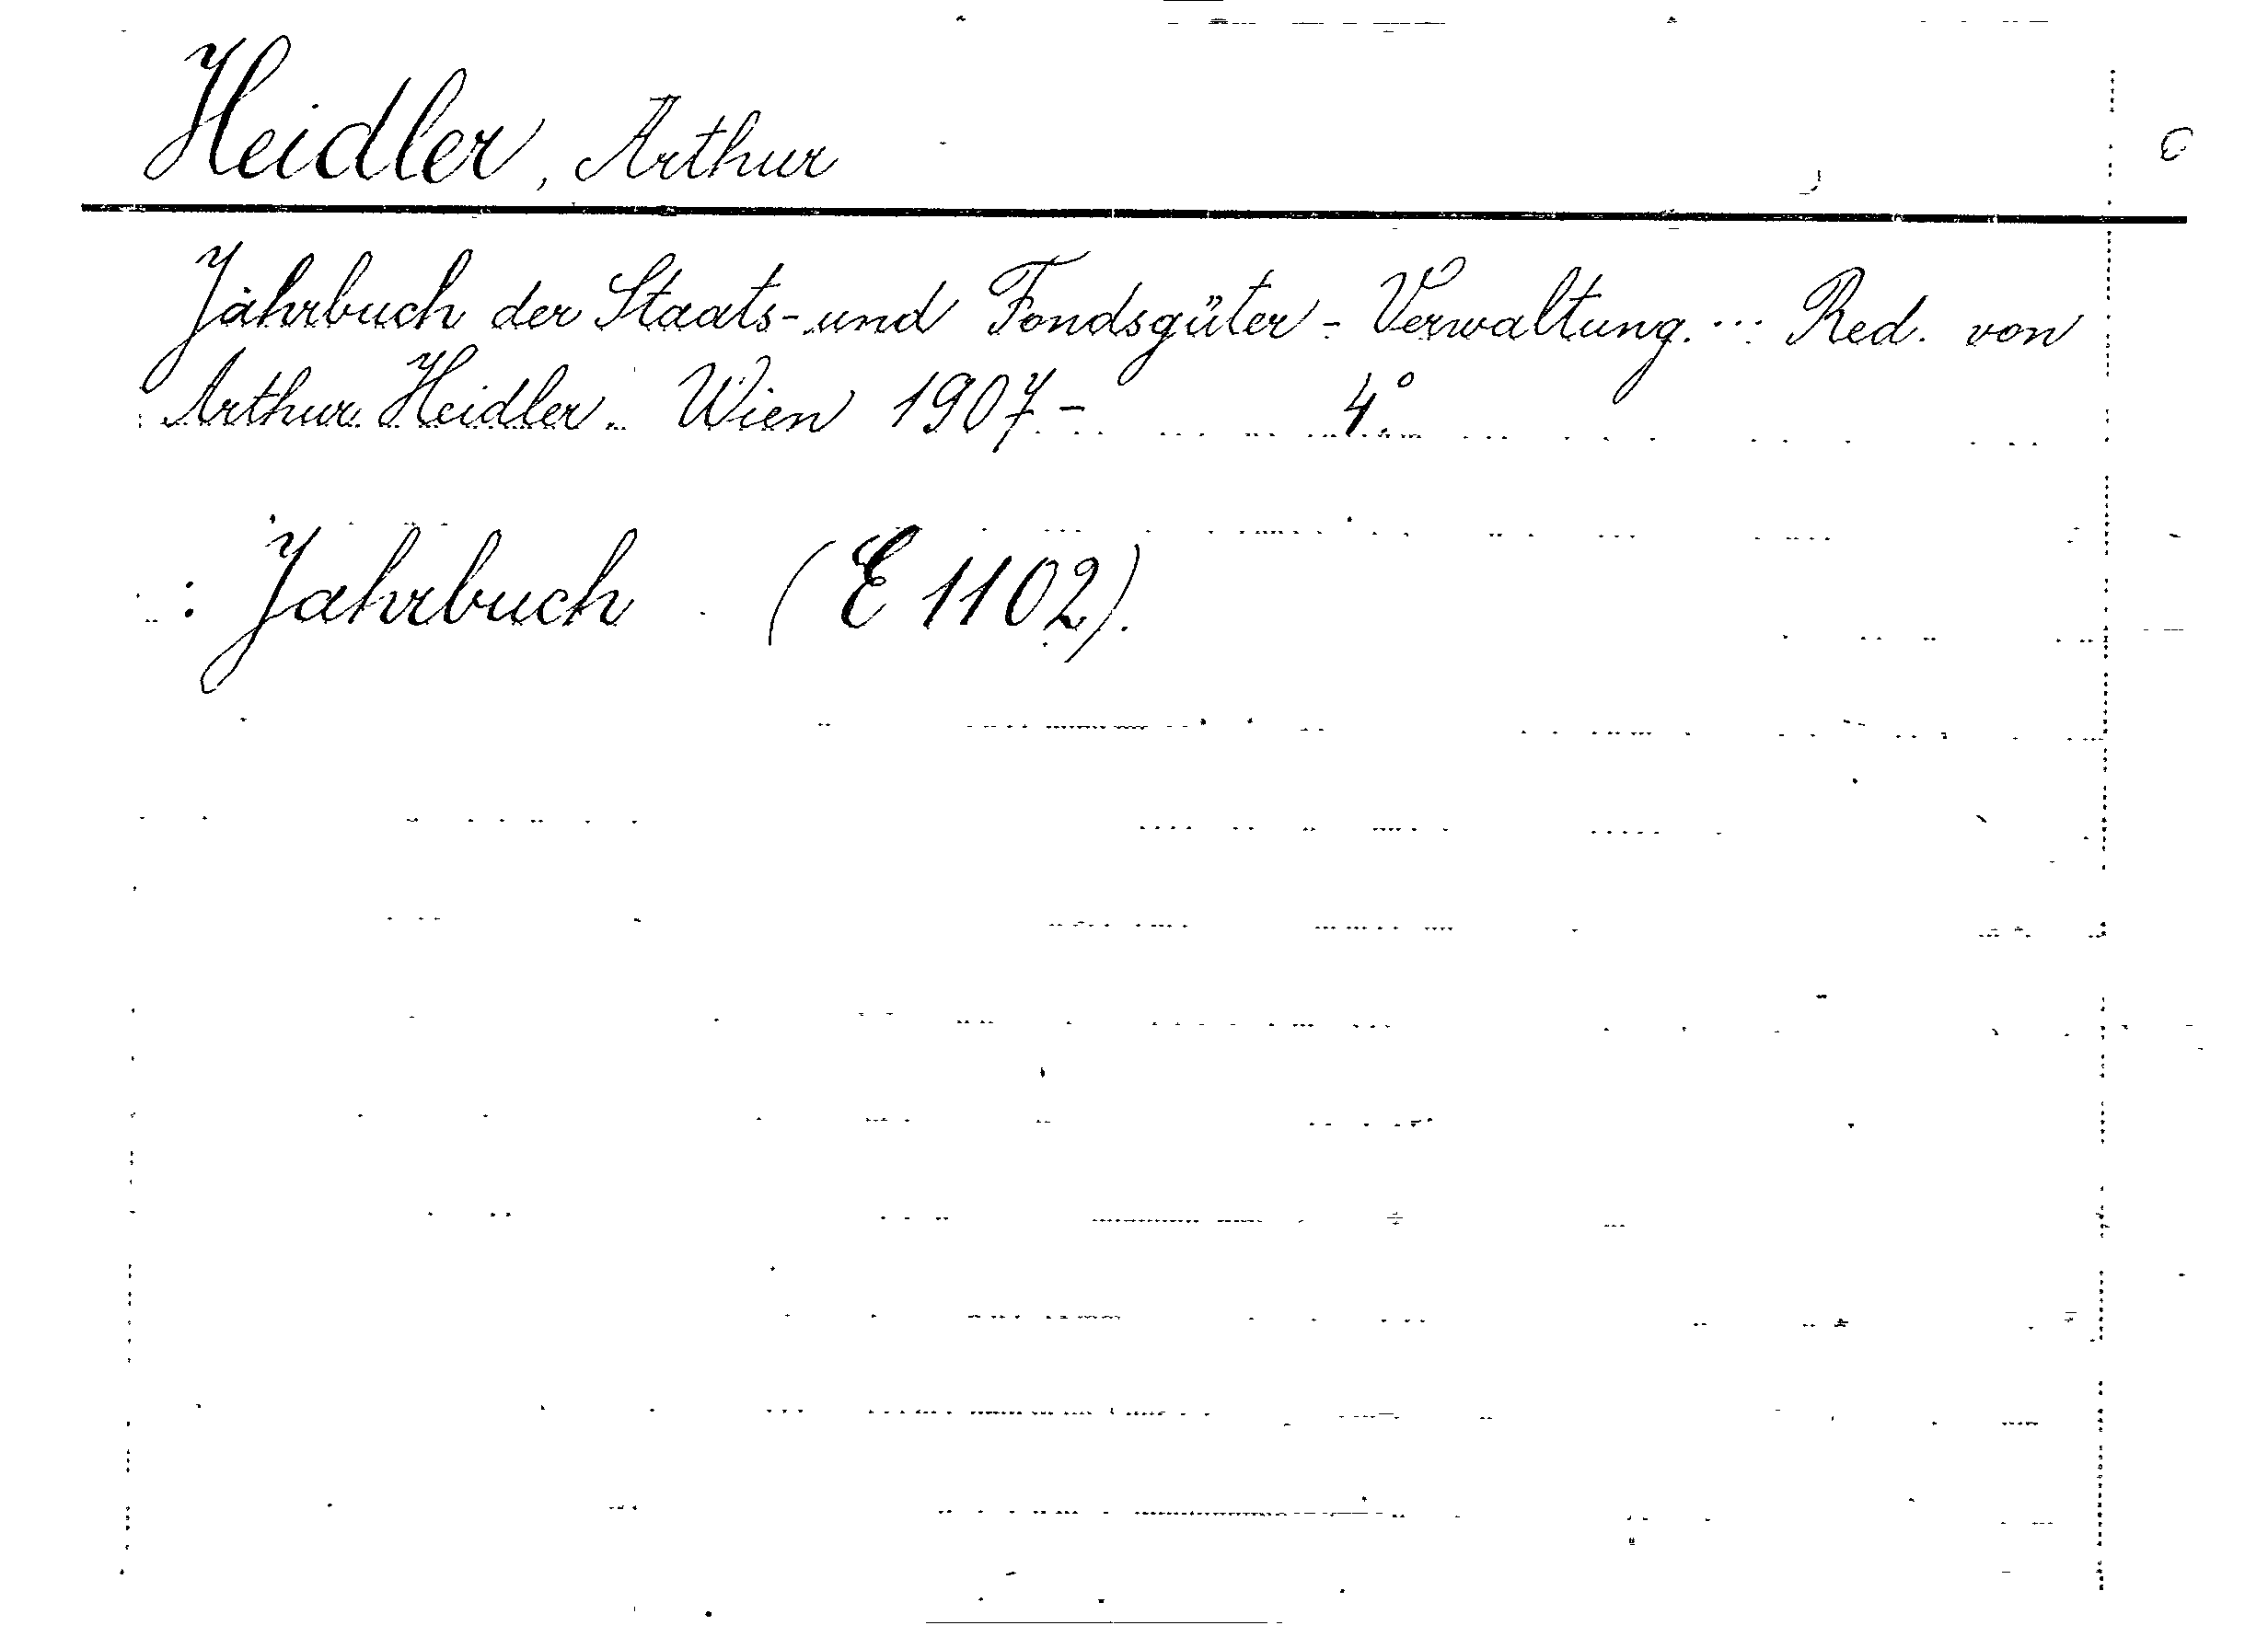 Heidler, Arthur
Jahrbuch der Staats- und Fondsgüter-Verwaltung. ... Red. von
Arthur Heidler. Wien 1907- 4°
: Jahrbuch (E 1102).